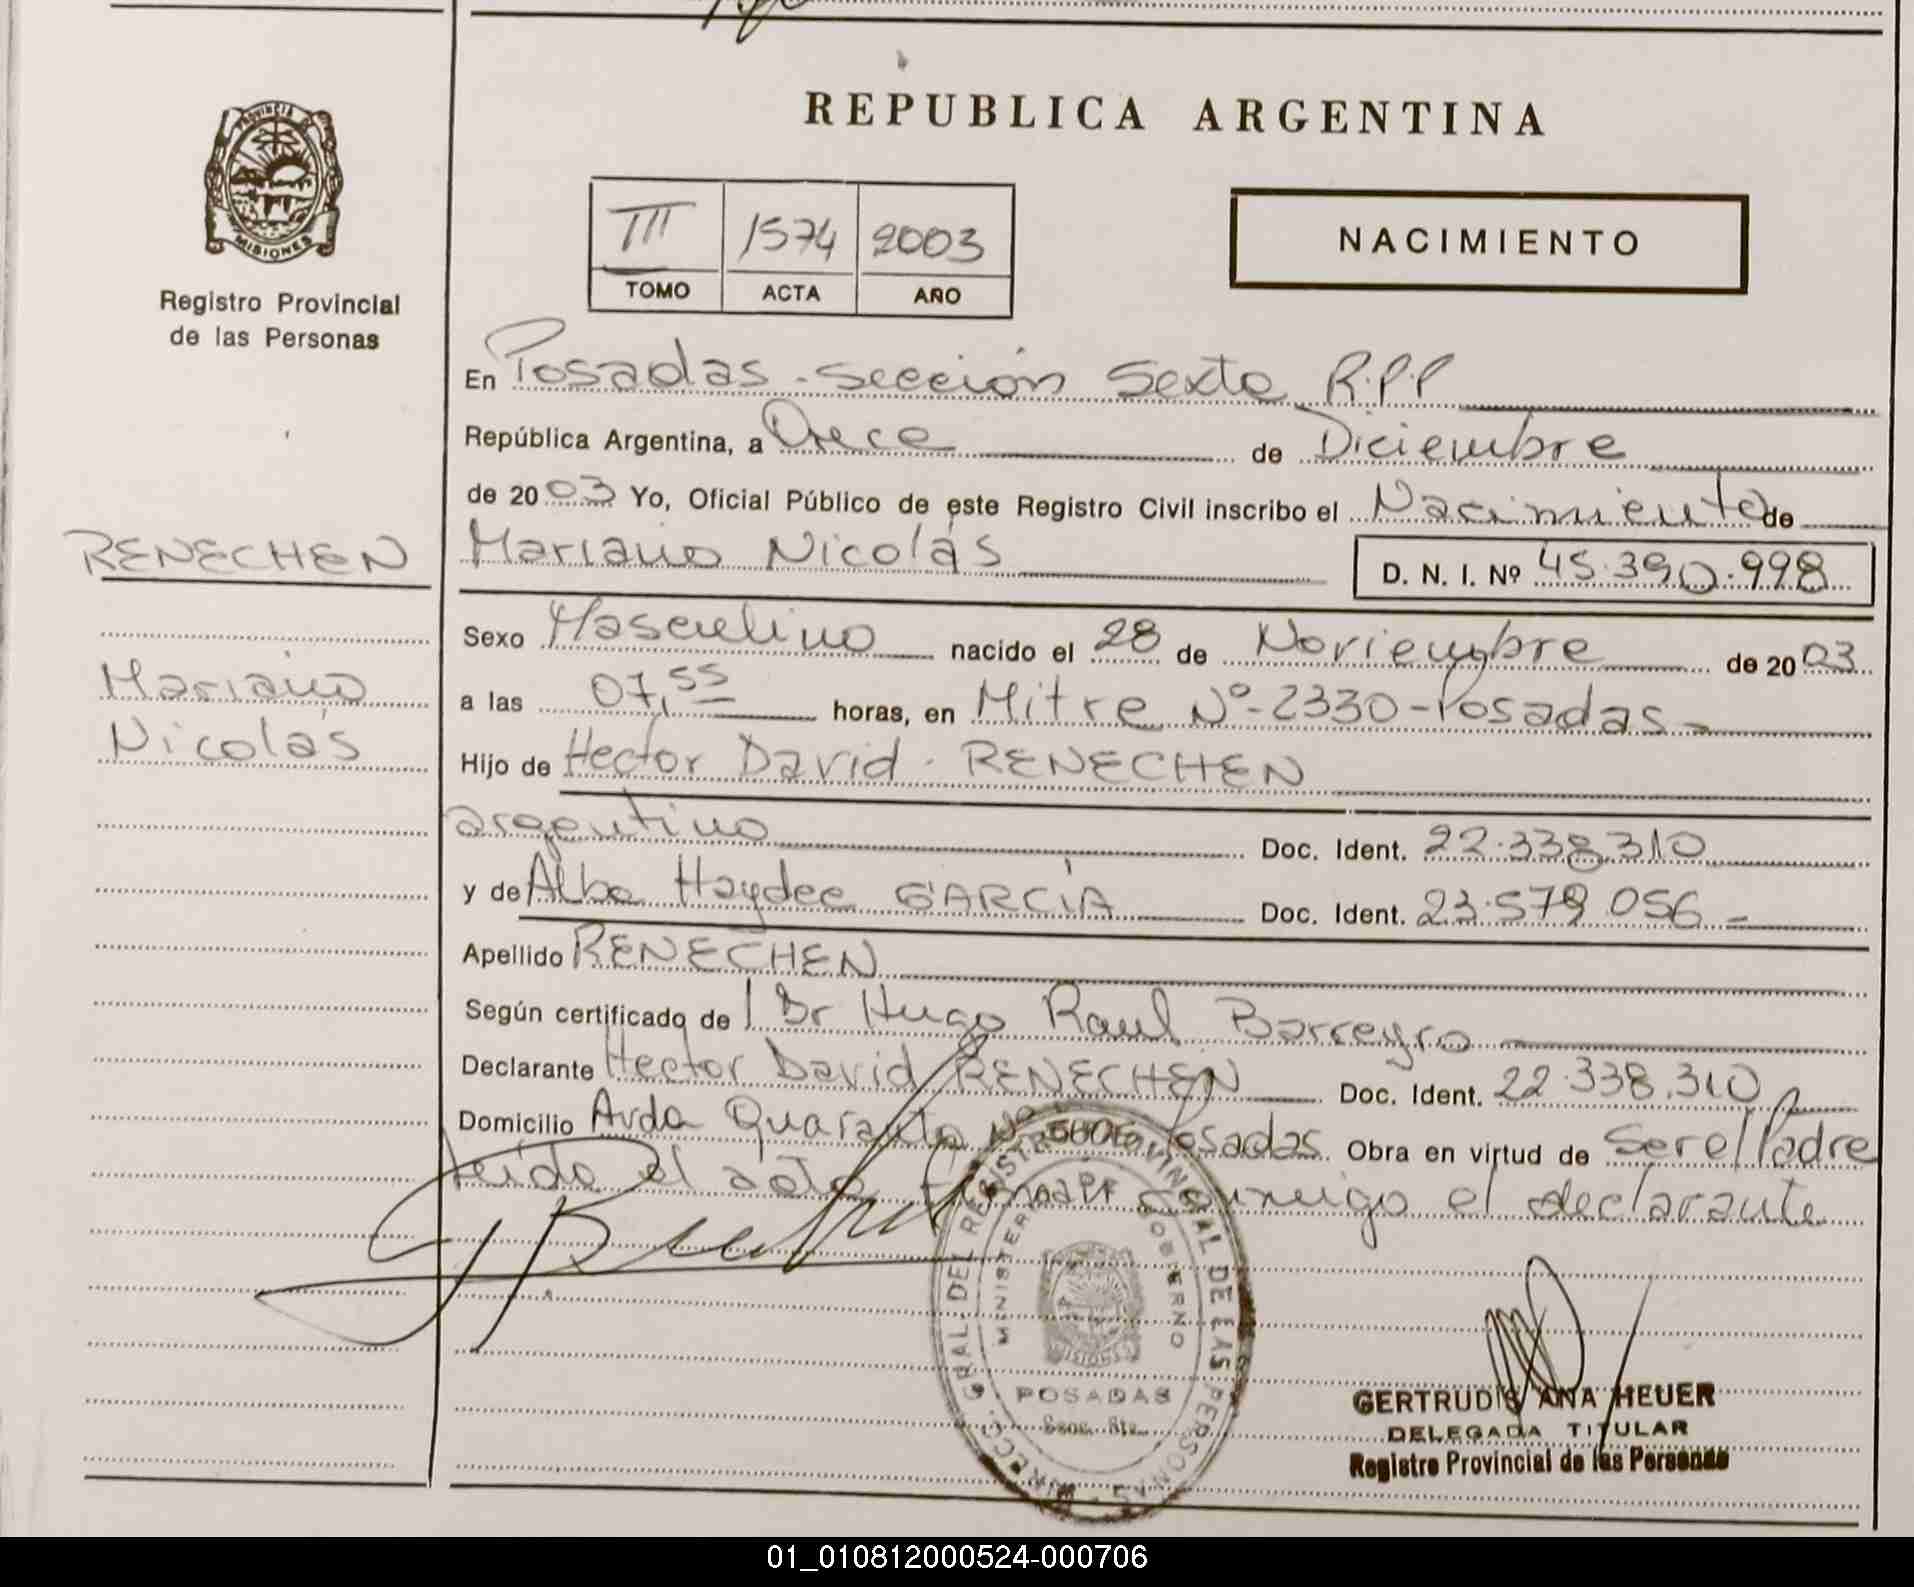 REPUBLICA ARGENTINA
PROVINCIA DE
MISIONES
Registro Provincial
de las Personas
III 1574 2003
TOMO ACTA AÑO
NACIMIENTO
En Posadas - Sección Sexta R.P.P
República Argentina, a Once de Diciembre
de 2003 Yo, Oficial Público de este Registro Civil inscribo el Nacimiento de
RENECHEN
Mariano Nicolás D. N. I. Nº 45.390.998
Sexo Masculino nacido el 28 de Noviembre de 2003
Mariano
Nicolás
a las 07,55 horas, en Mitre Nº-2330-Posadas-
Hijo de Hector David. RENECHEN
argentino Doc. Ident. 22.338.310
y de Alba Haydee GARCÍA Doc. Ident. 23.579.056 =
Apellido RENECHEN
Según certificado de l Dr Hugo Raul Barreyro
Declarante Hector David RENECHEN Doc. Ident. 22.338.310
Domicilio Avda Quaranta Nº Posadas Obra en virtud de Ser el Padre
Leído el acta conmigo el declarante
DIRECC. GRAL. DEL REGISTRO PROVINCIAL DE LAS PERSONAS
MINISTERIO GOBIERNO
MISIONES
POSADAS
Secc. 6ta.
GERTRUDIS ANA HEUER
DELEGADA TITULAR
Registro Provincial de las Personas
01_010812000524-000706